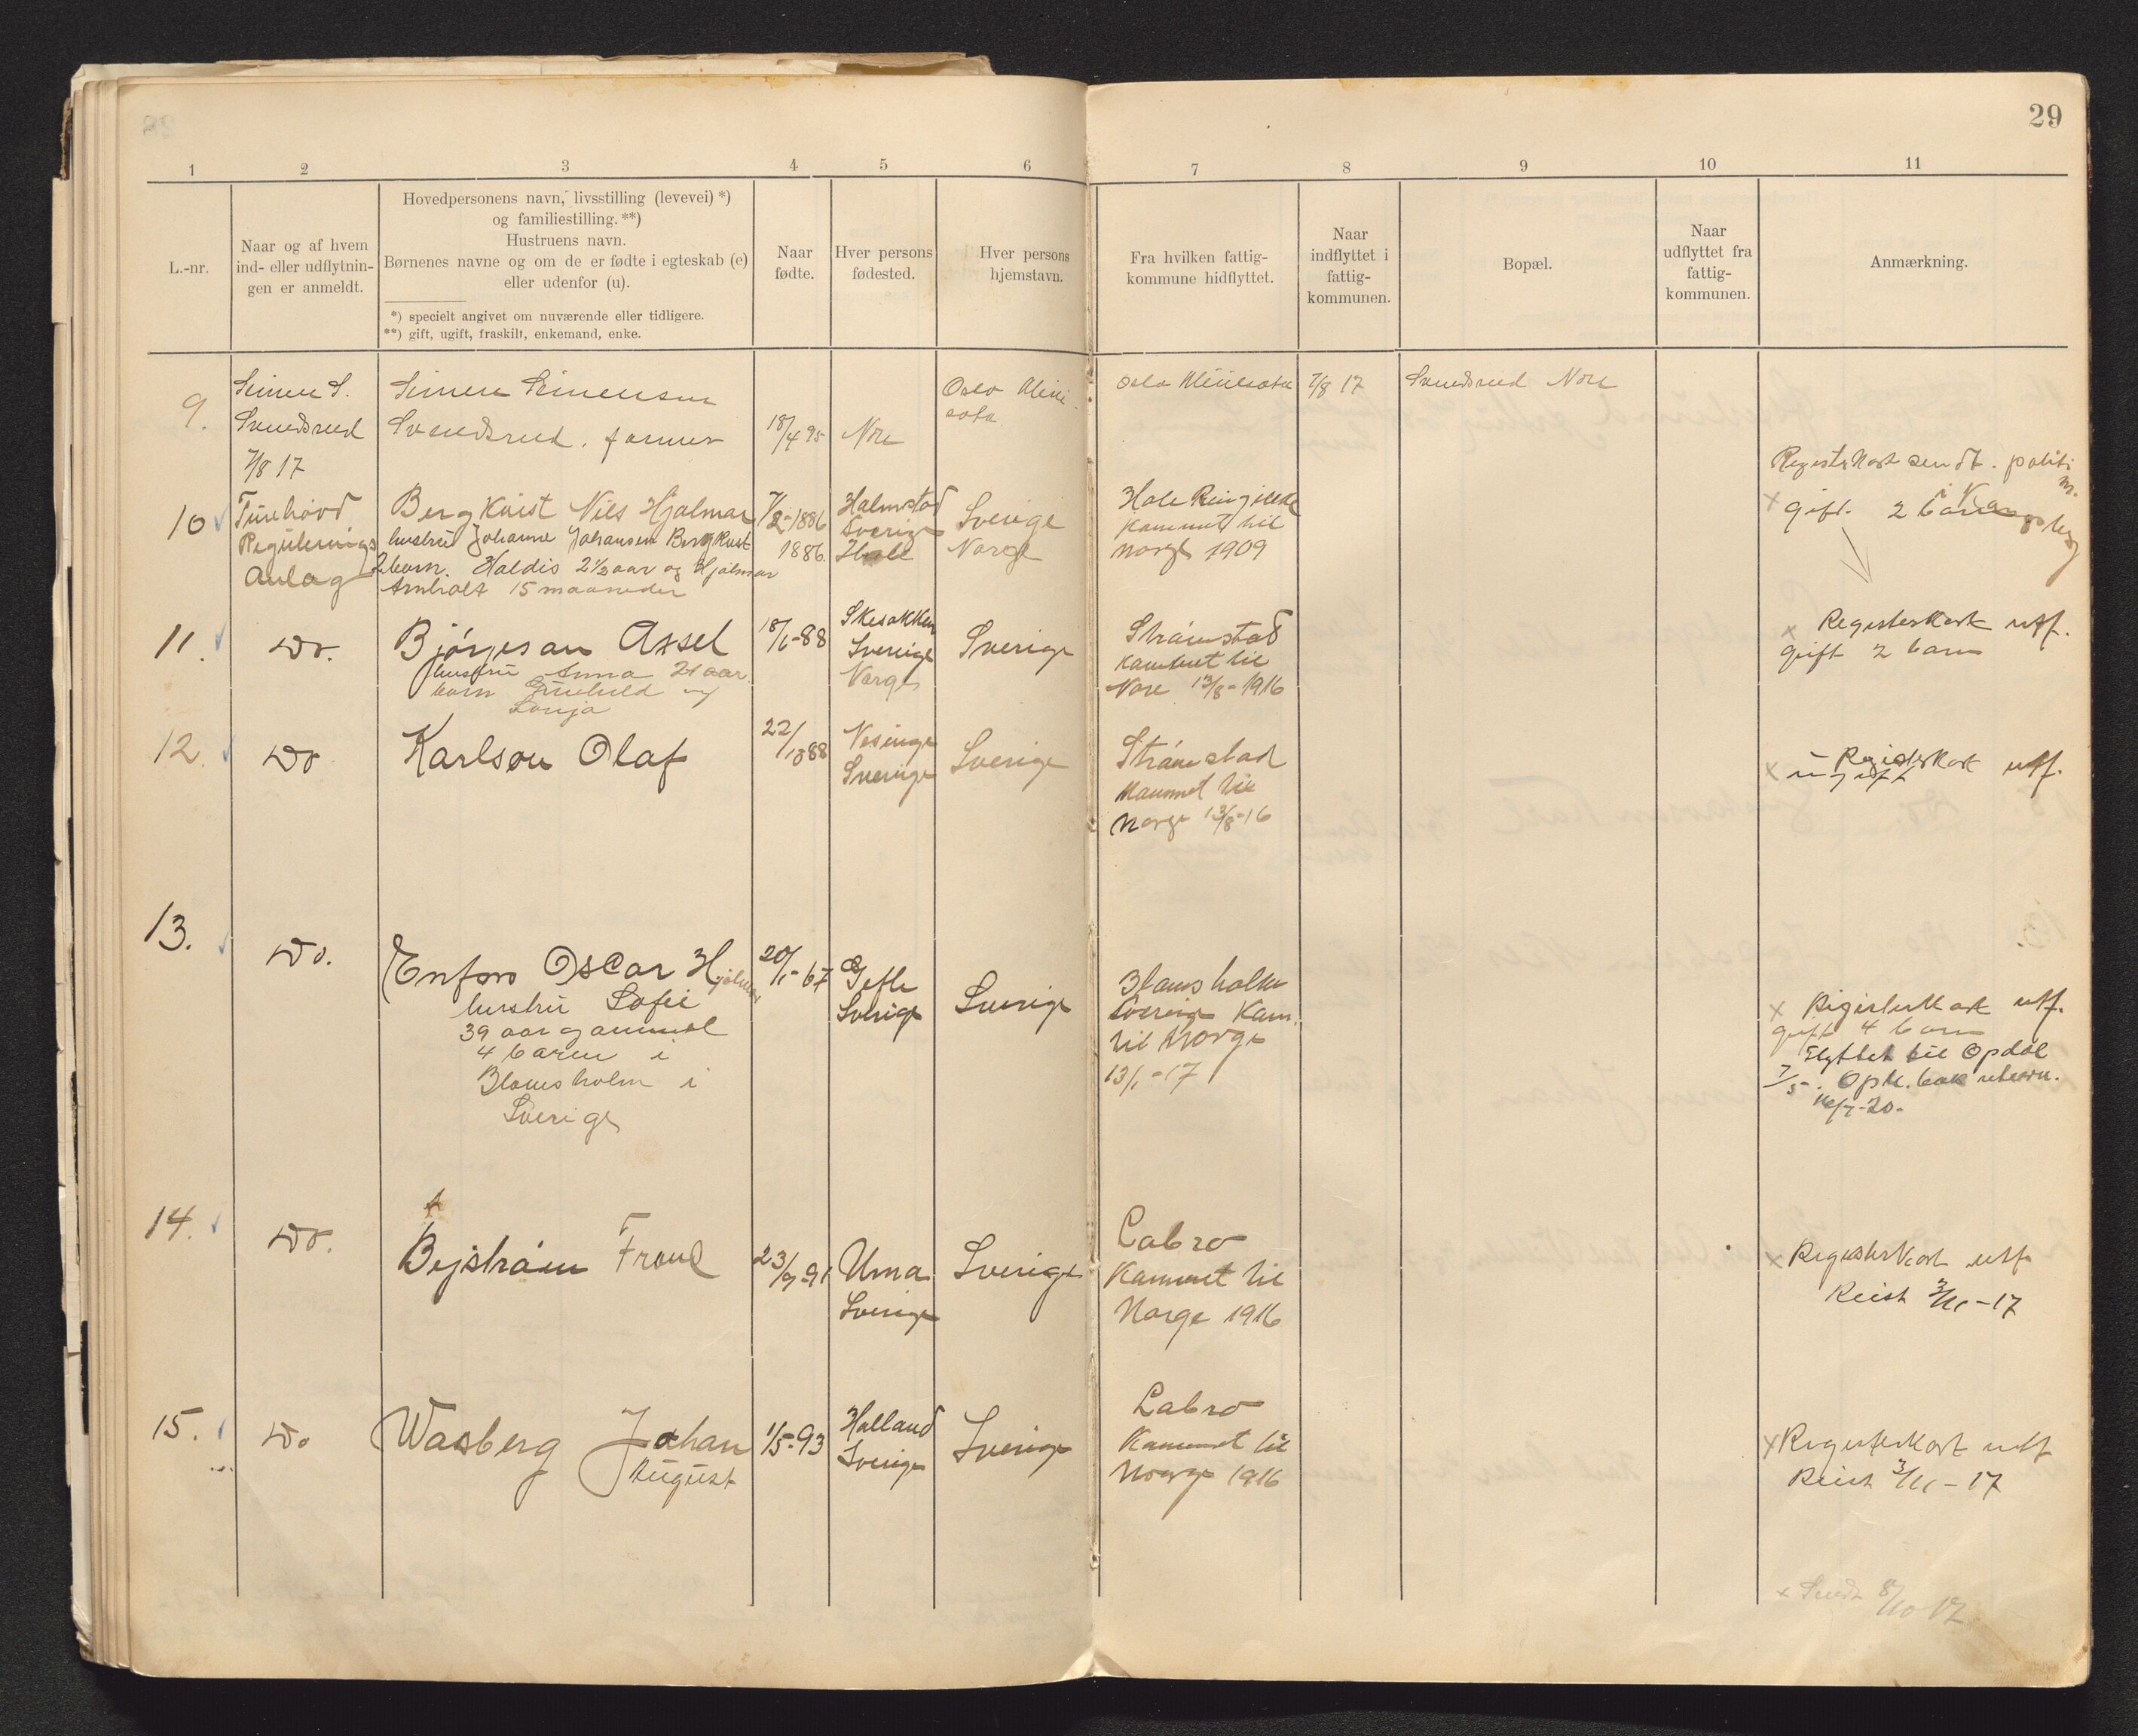 29
1 2 3 4 5 6 7 8 9 10 11
L.-nr.
Naar og af hvem
ind- eller udflytnin-
gen er anmeldt.
Hovedpersonens navn, livsstilling (levevei) *)
og familiestilling. **)
Hustruens navn.
Børnenes navne og om de er fødte i egteskab (e)
eller udenfor (u).
*) specielt angivet om nuværende eller tidligere.
**) gift, ugift, fraskilt, enkemand, enke.
Naar
fødte.
Hver persons
fødested.
Hver persons
hjemstavn.
Fra hvilken fattig-
kommune hidflyttet.
Naar
indflyttet i
fattig-
kommunen.
Bopæl.
Naar
udflyttet fra
fattig-
kommunen.
Anmærkning.
9.
Simen S.
Svendsrud
7/8 17
Simen Simensen
Svendsrud. farmer
18/4 95
Nore
Oslo Mini
sota
Oslo Minesota
7/8 17
Svendsrud Nore
10
Tunhövd
Regulerings
Anlæg
Bergkvist Nils Hjalmar
hustru Johanne Johansen Bergkvist
2 born. Haldis 2 1/2 aar og Hjalmar
Arnholt 15 maaneder
7/2-1886
1886.
Halmstad
Sverige
Hole
Sverige
Norge
Hole Ringerike
kommet til
norge 1909
Registerkort sendt. politi
m. i Kongsberg
x gift. 2 barn
11.
Do.
Björgesan Axsel
hustru Anna 21 aar
born Gunhild og
Sonja
18/1-88
Sverige
Norge
Sverige
Strömstad
kommet til
Nore 13/8-1916
x Registerkort utf.
gift 2 barn
12.
Do
Karlson Olaf
22/10 88
Sverige
Sverige
Strömstad
kommet til
Norge 13/8-16
x Registerkort utf.
ugift
13.
Do.
Enfors Oscar Hjalmar
hustru Sofie
39 aar gammel
4 baren i
Blomsholm i
Sverige
20/1-67
Gefle
Sverige
Sverige
Blomsholm
Sverige Kom.
til Norge
13/1-17
x Registerkort utf.
gift 4 barn
Flyttet til Opdal
7/5. Oph. bok return.
16/7-20.
14.
Do.
Bejström Frans
23/9-91
Uma
Sverige
Sverige
Labro
Kommet til
Norge 1916
x Registerkort utf
Reist 3/11-17
15.
Do
Wasberg Johan
August
1/5-93
Halland
Sverige
Sverige
Labro
Kommet til
Norge 1916
x Registerkort utf
Reist 3/11-17
x Sendt 8/10 17